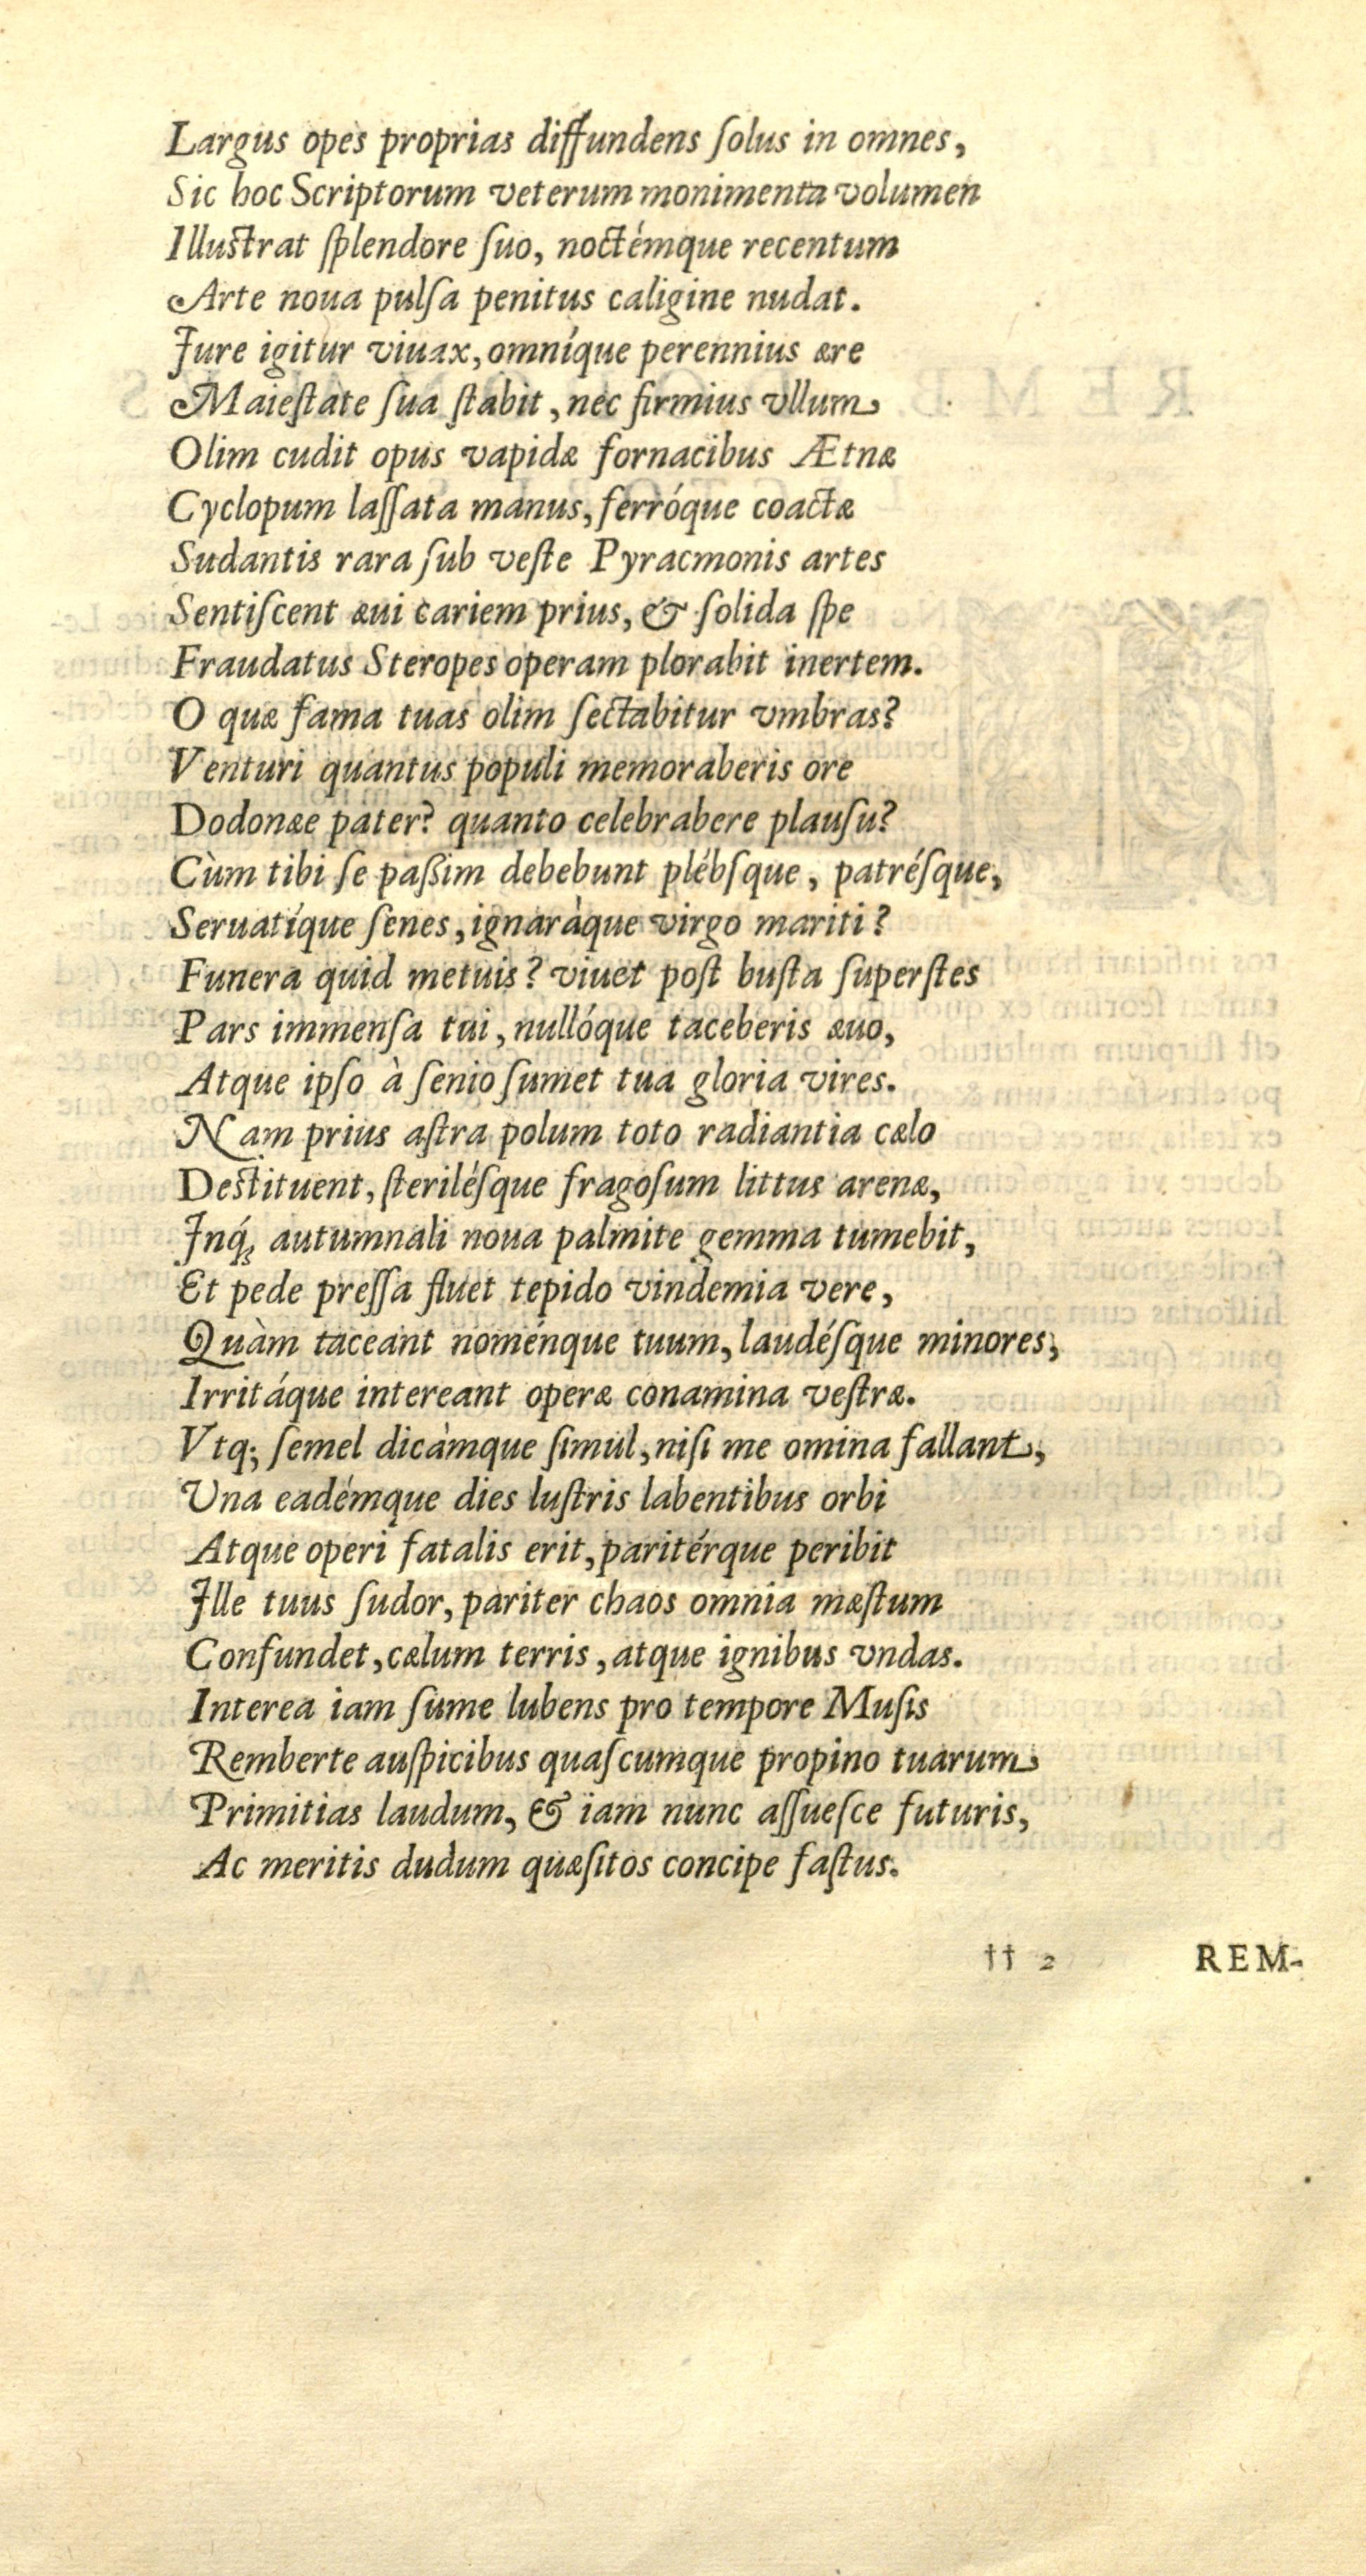 Largus opes proprias diffundens ſolus in omnes,
Sic hoc Scriptorum veterum monimenta volumen
Illuſtrat ſplendore ſuo, noctémque recentum
Arte noua pulſa penitus caligine nudat.
Jure igitur viuax, omníque perennius ære
Maieſtate ſua ſtabit, nec firmius vllum
Olim cudit opus vapidæ fornacibus Ætnæ
Cyclopum laſſata manus, ferróque coactæ
Sudantis rara ſub veſte Pyracmonis artes
Sentiſcent æui cariem prius, & ſolida ſpe
Fraudatus Steropes operam plorabit inertem.
O quæ fama tuas olim ſectabitur vmbras?
Venturi quantus populi memoraberis ore
Dodonæe pater? quanto celebrabere plauſu?
Cùm tibi ſe paßim debebunt plébſque, patréſque,
Seruatíque ſenes, ignaràque virgo mariti?
Funera quid metuis? viuet poſt buſta ſuperſtes
Pars immenſa tui, nullóque taceberis æuo,
Atque ipſo à ſenio ſumet tua gloria vires.
Nam prius aſtra polum toto radiantia cælo
Deſtituent, ſteriléſque fragoſum littus arenæ,
Jnq́ꝫ autumnali noua palmite gemma tumebit,
Et pede preſſa fluet tepido vindemia vere,
Quàm taceant noménque tuum, laudéſque minores,
Irritáque intereant operæ conamina veſtræ.
Vtq; ſemel dicàmque ſimul, niſi me omina fallant,
Una eadémque dies luſtris labentibus orbi
Atque operi fatalis erit, paritérque peribit
Jlle tuus ſudor, pariter chaos omnia mæſtum
Confundet, cælum terris, atque ignibus vndas.
Interea iam ſume lubens pro tempore Muſis
Remberte auſpicibus quaſcumque propino tuarum
Primitias laudum, & iam nunc aſſueſce futuris,
Ac meritis dudum quæſitos concipe faſtus.
†† 2 REM-